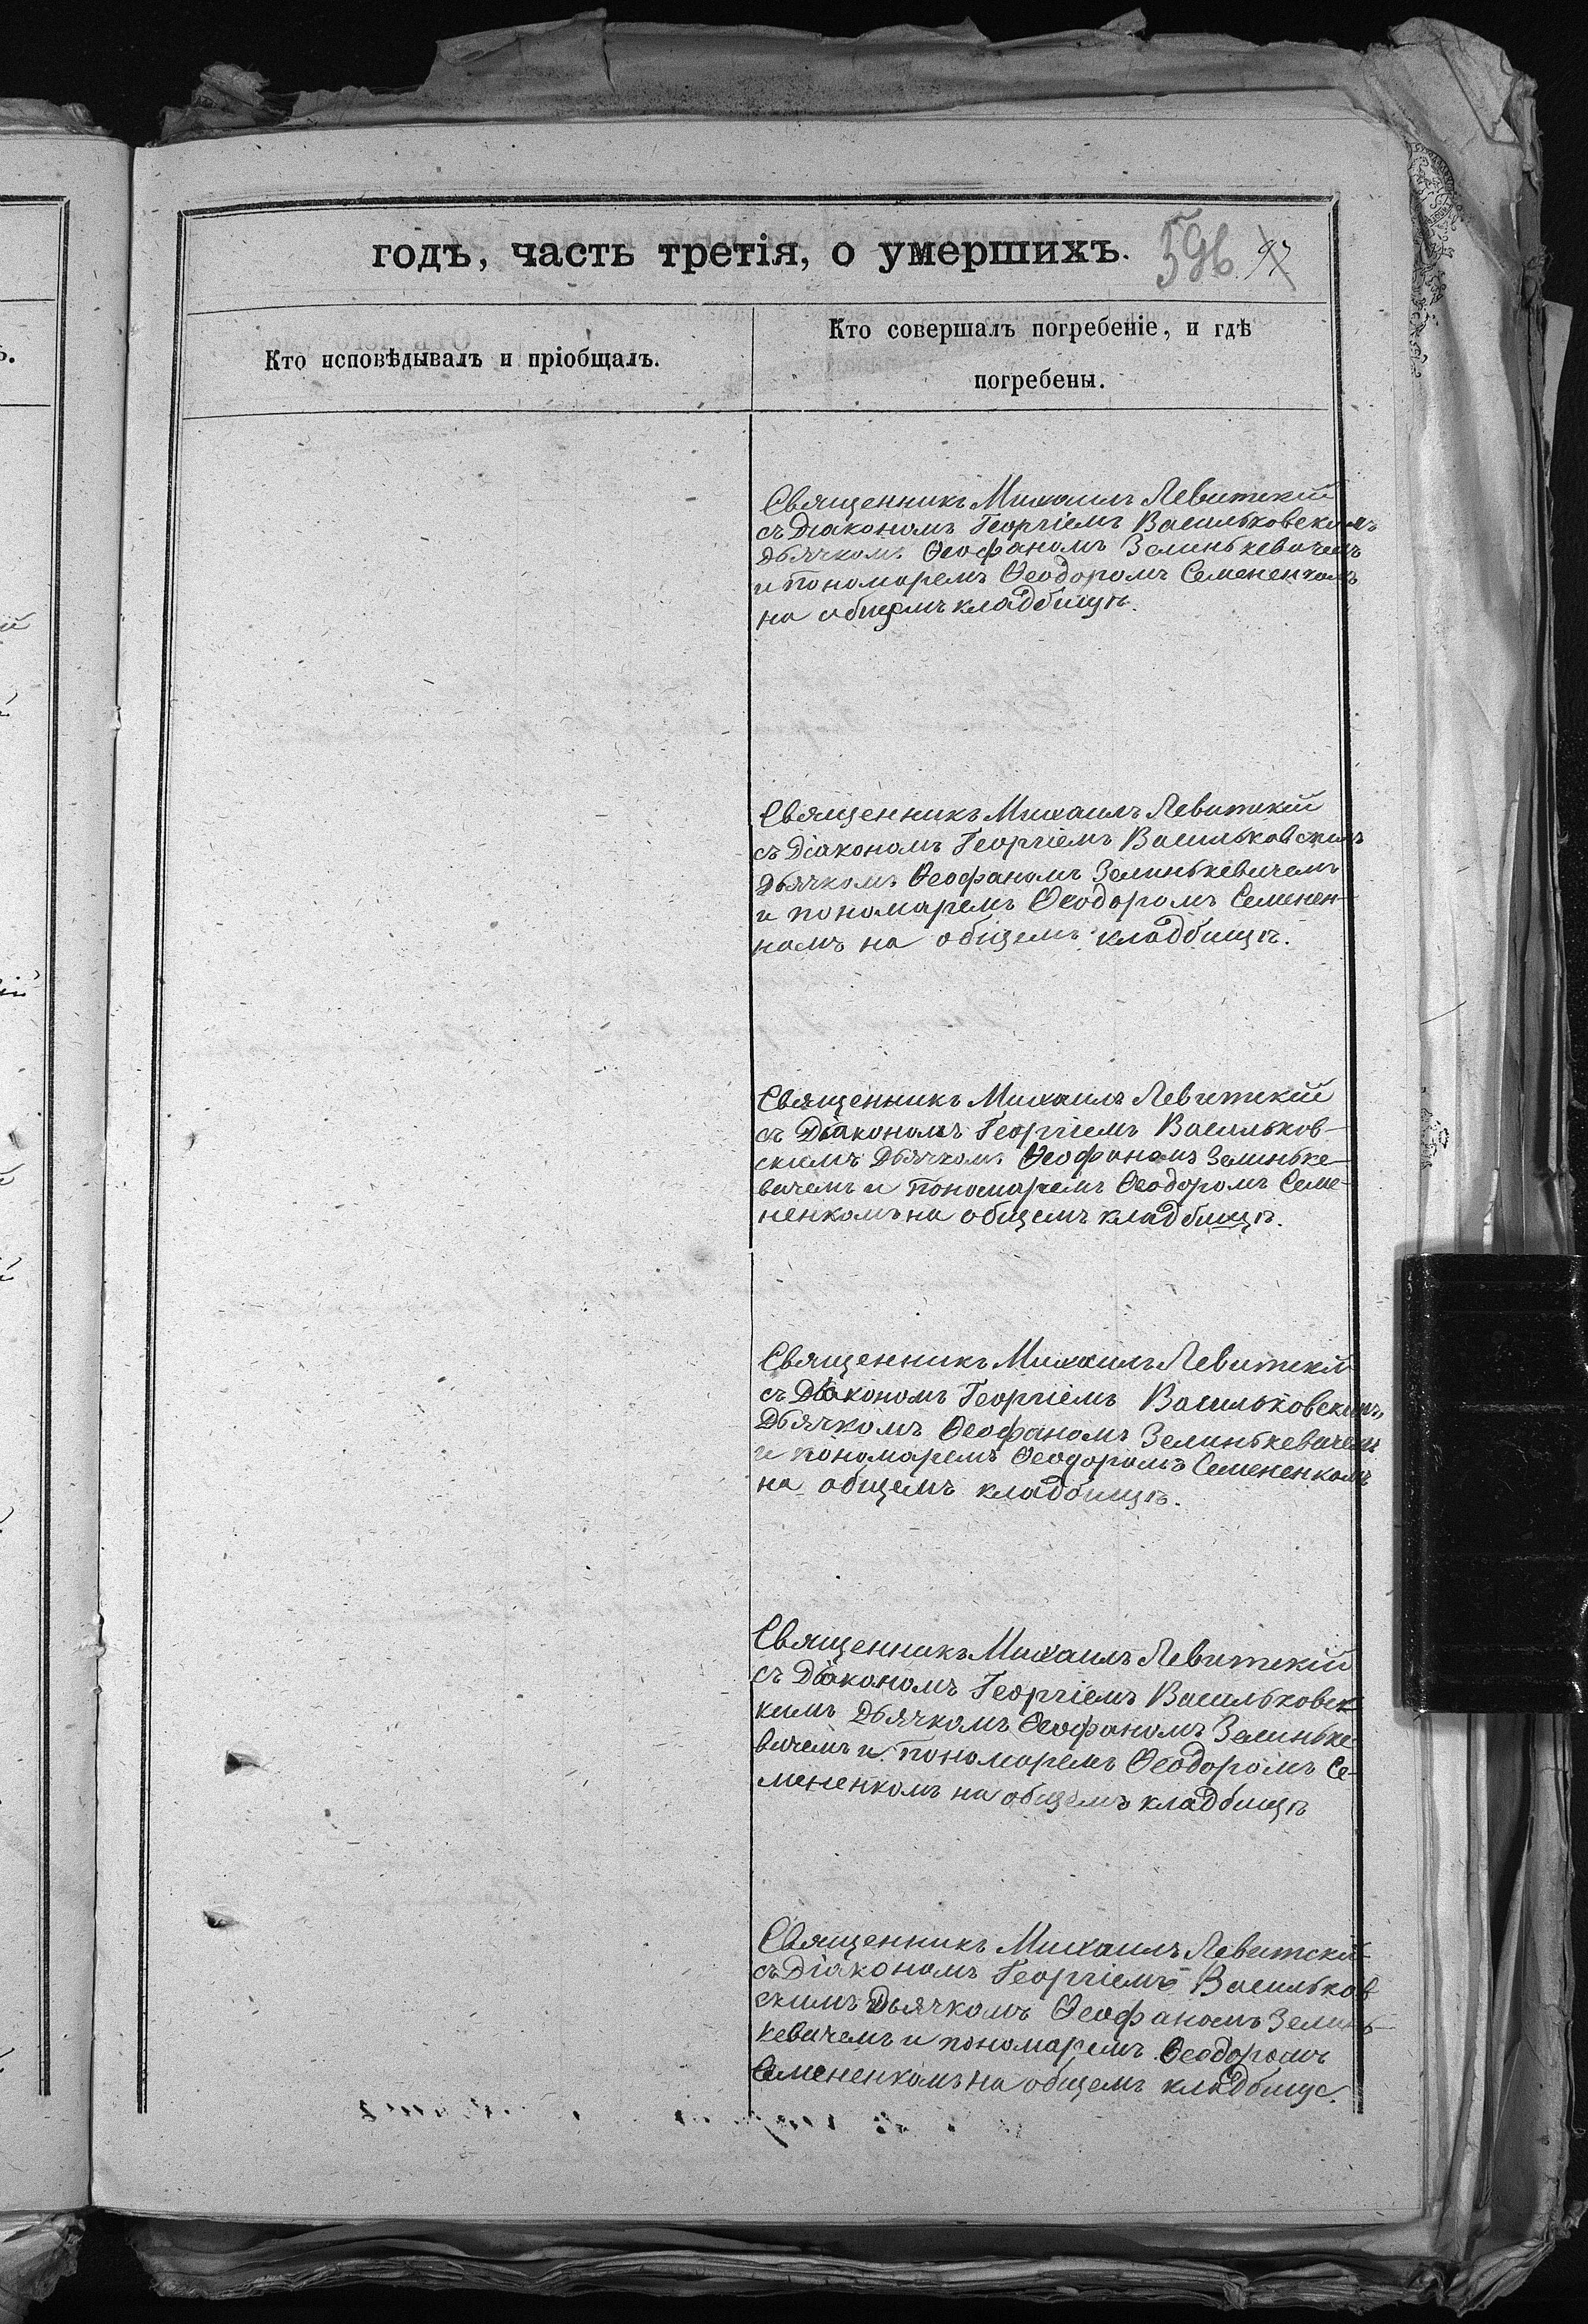 годъ, часть третія, о умершихъ.
596 97
Кто исповѣдывалъ и пріобщалъ.
Кто совершалъ погребеніе, и гдѣ
погребены.
Священникъ Михаилъ Левитскій
съ Діакономъ Георгіемъ Васильковскимъ
Дьячкомъ Ѳеофаномъ Зелинькевичемъ
и пономаремъ Ѳеодоромъ Семененкомъ
на общемъ кладбищѣ.
Священникъ Михаилъ Левитскій
съ Діакономъ Георгіемъ Васильковскимъ
Дьячкомъ Ѳеофаномъ Зелинькевичемъ
и пономаремъ Ѳеодоромъ Семенен-
комъ на общемъ кладбищѣ.
Священникъ Михаилъ Левитскій
съ Діакономъ Георгіемъ Васильков-
скимъ Дьячкомъ Ѳеофаномъ Зелиньке-
вичемъ и пономаремъ Ѳеодоромъ Семе-
ненкомъ на общемъ кладбищѣ.
Священникъ Михаилъ Левитскій
съ Діакономъ Георгіемъ Васильковскимъ,
Дьячкомъ Ѳеофаномъ Зелинькевичемъ
и пономаремъ Ѳеодоромъ Семененкомъ
на общемъ кладбищѣ.
Священникъ Михаилъ Левитскій
съ Діакономъ Георгіемъ Васильковск-
кимъ Дьячкомъ Ѳеофаномъ Зелиньке-
вичемъ и пономаремъ Ѳеодоромъ Се-
мененкомъ на общемъ кладбищѣ
Священникъ Михаилъ Левитскій
съ Діакономъ Георгіемъ Васильков
скимъ Дьячкомъ Ѳеофаномъ Зелинь-
кевичемъ и пономаремъ Ѳеодоромъ
Семененкомъ на общемъ кладбище.